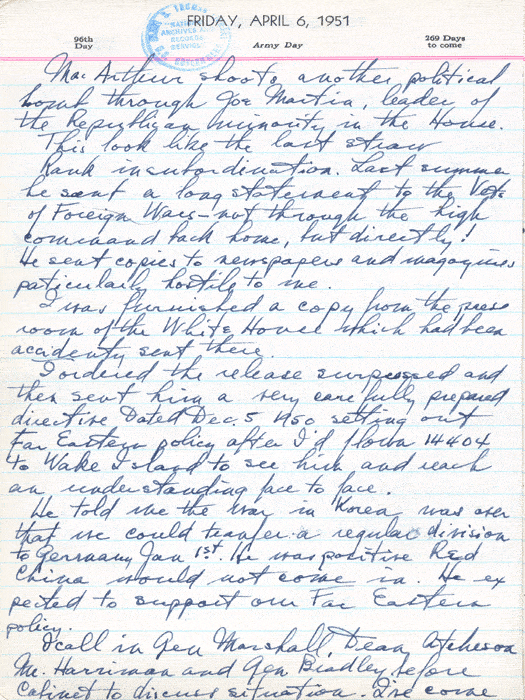 FRIDAY, APRIL 6, 1951
96th
Day
Army Day
269 Days
to come
NATIONAL
ARCHIVES AND
RECORDS
SERVICE
MacArthur shoots another political
bomb through Joe Martin, leader of
the Republican minority in the House.
This look like the last straw
Rank insubordination. Last summer
he sent a long statement to the Vets
of Foreign Wars—not through the high
command back home, but directly!
He sent copies to newspapers and magazines
paticularly hostile to me.
I was furnished a copy from the press
room of the White House which had been
accidenty sent there.
I ordered the release surpressed and
then sent him a very carefully prepared
directive Dated Dec. 5 1950 setting out
Far Eastern policy after I'd flown 14404
to Wake Island to see him and reach
an understanding face to face.
He told me the war in Korea was over
that we could transfer a regular division
to Germany Jan 1st. He was positive Red
China would not come in. He ex
pected to support our Far Eastern
policy.
I call in Gen Marshall, Dean Atcheson
Mr. Harriman and Gen Bradley before
Cabinet to discuss situation. I've come